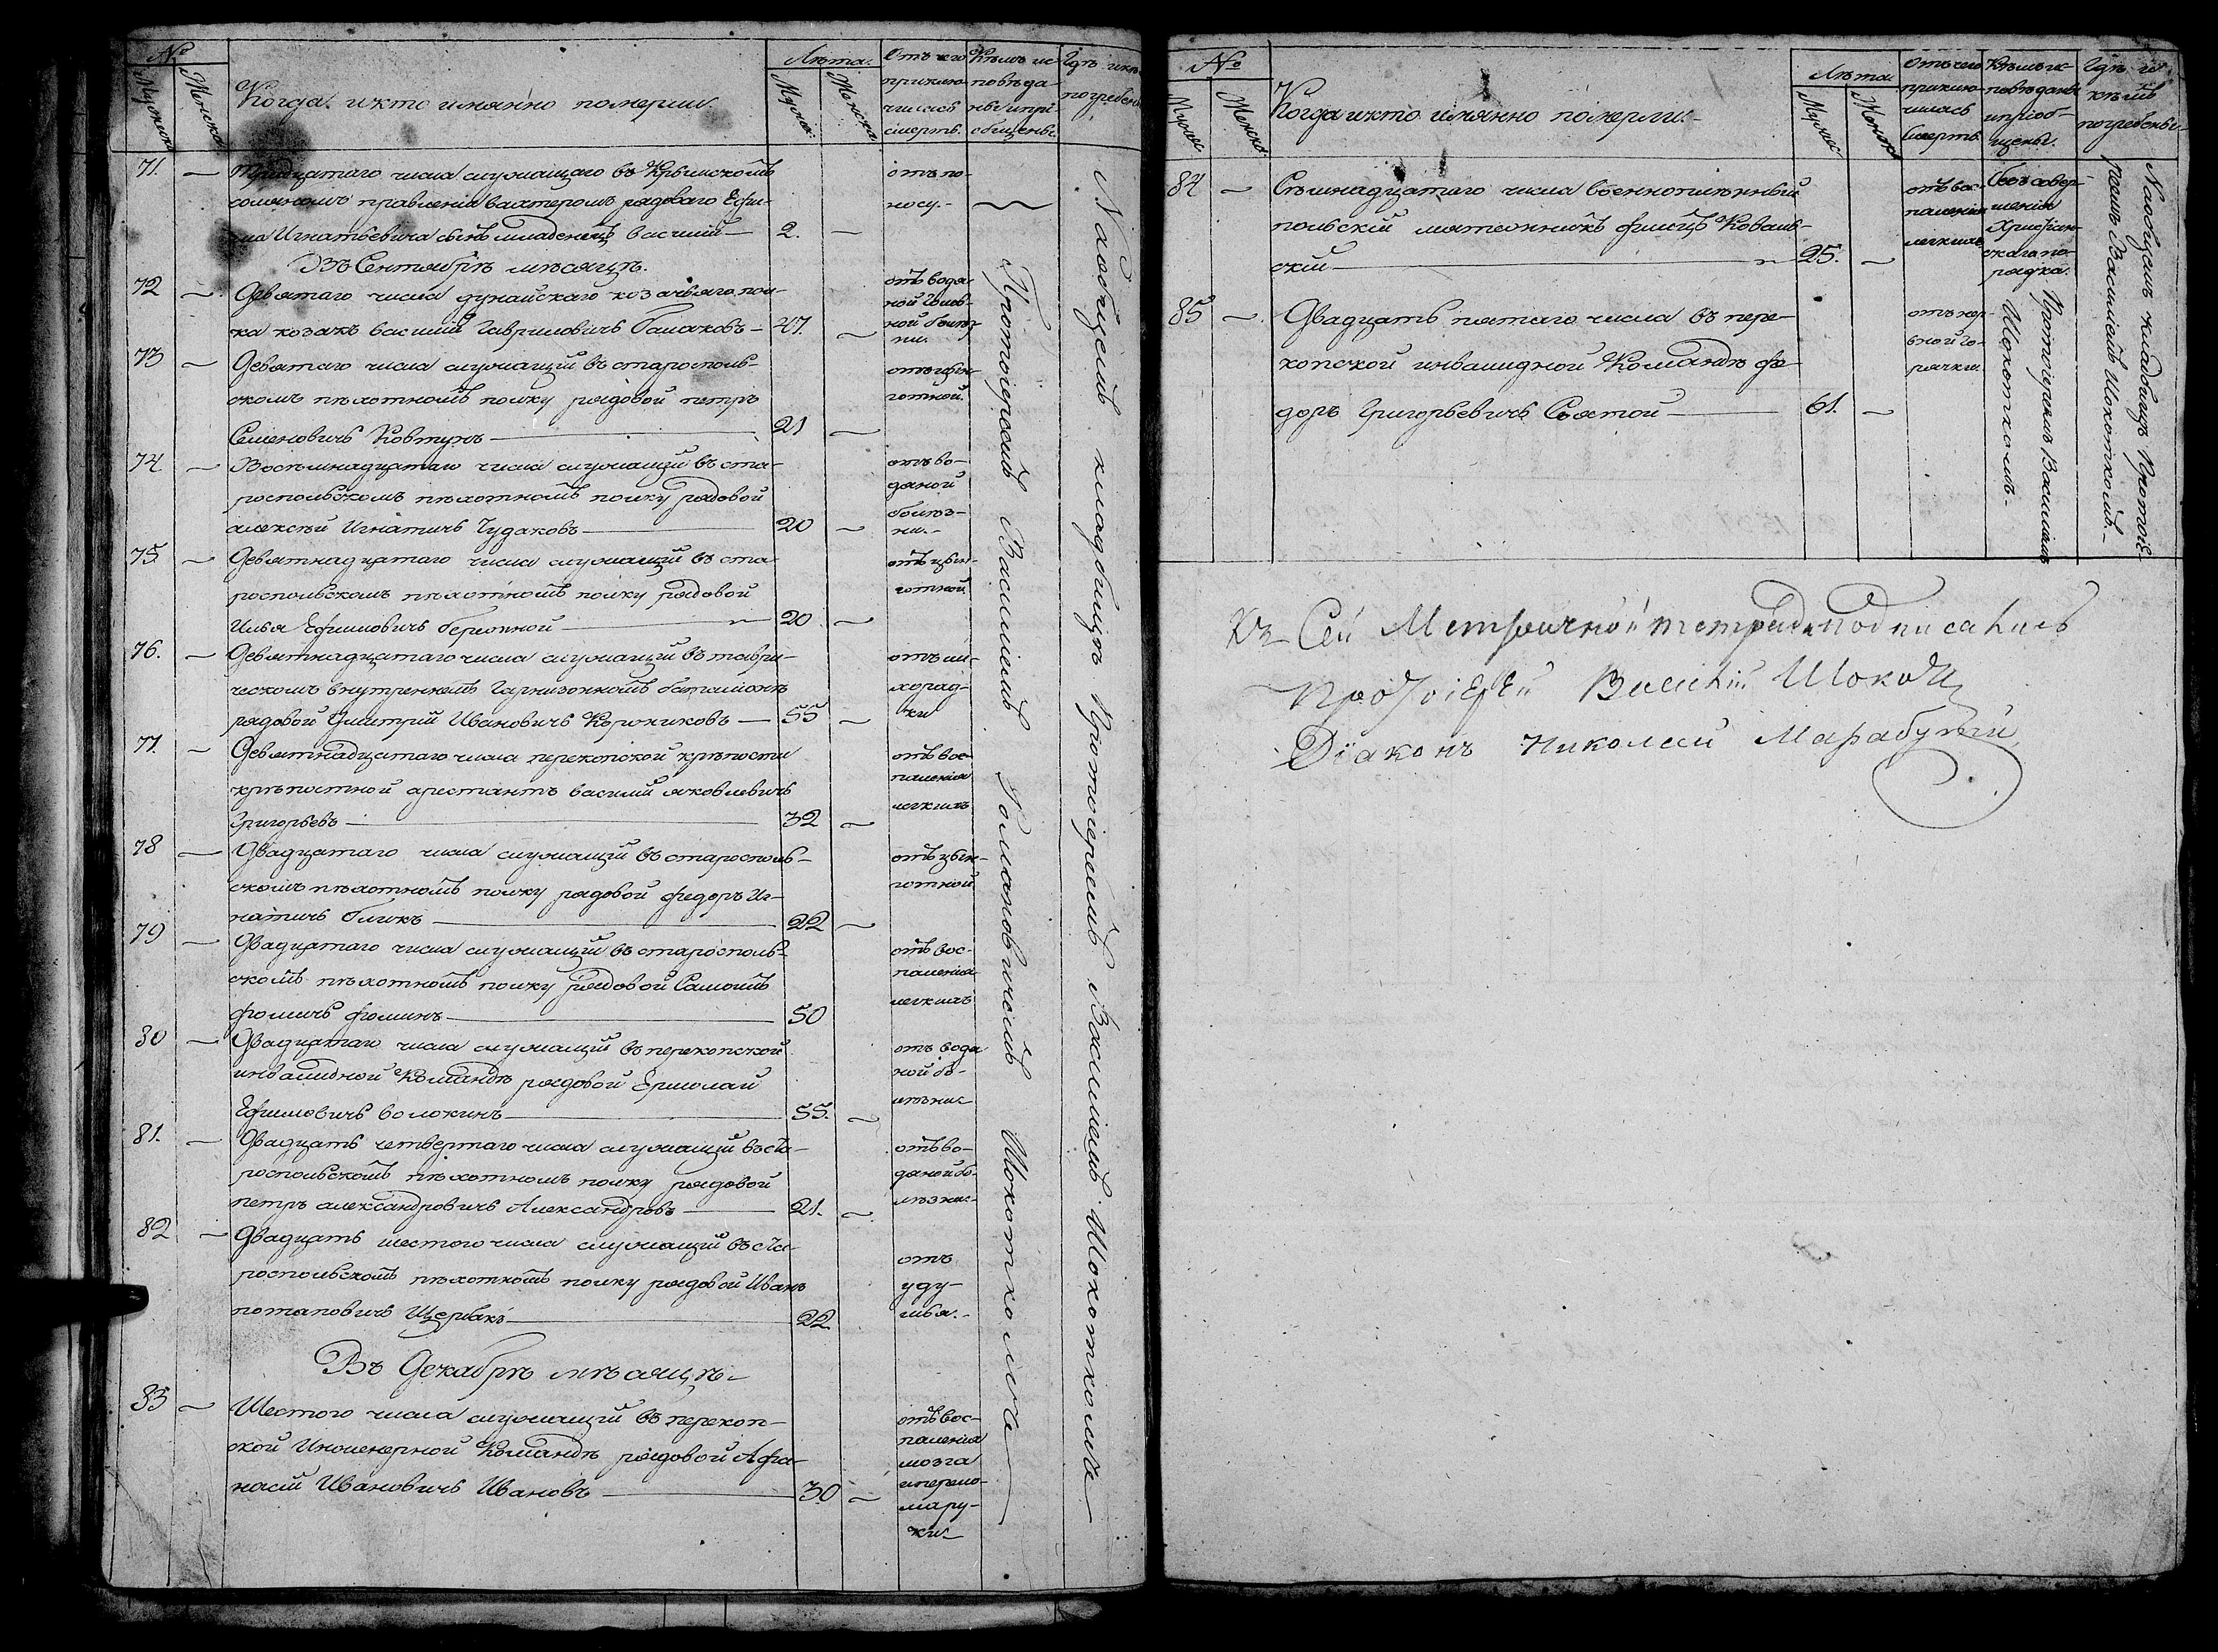 №
Когда и кто имянно померли.
Лѣта.
Отъ чего приклю-
чилась
смерть.
Кѣмъ ис-
повѣда-
ны и прі-
общены.
Гдѣ и кѣмъ
погребены
71.
Тридцатаго числа служащаго въ Крымскомъ
соляномъ правленіи вахтеромъ рядоваго Ефи-
ма Игнатьевича сынъ младенецъ василій — 2. —
отъ по-
носу. —
Въ Сентябрѣ мѣсяцѣ.
72 —
Девятаго числа дунайскаго козачьяго пол-
ка козакъ василій Гавриловичъ балаковъ — 47. —
отъ водя-
ной голов-
ной болѣз-
ни.
73 —
Девятаго числа служащій въ староsполь-
скомъ пѣхотномъ полку рядовой петръ
Семеновичъ Ковтунъ — 21 —
отъ цын-
готной.
74 —
Восемнадцатаго числа служащій въ ста-
роспольскомъ пѣхотномъ полку рядовой
алексѣй Игнатичъ Чудаковъ — 20 —
отъ во-
дяной
болѣз-
ни. —
75 —
Девятнадцатаго числа служащій въ ста-
роспольскомъ пѣхотномъ полку рядовой
Илья Ефимовичъ бережной — 20 —
отъ цын-
готной
76. —
Девятнадцатаго числа служащій въ таври-
ческомъ внутреннемъ гарнизонномъ баталіонѣ
рядовой Дмитрій Ивановичъ Коржиковъ — 55 —
отъ ли-
хорад-
ки
77. —
Девятнадцатаго числа перекопской крѣпости
крѣпостной арестантъ василій яковлевичъ
Григорьевъ — 32 —
отъ вос-
паленія
легкихъ
78 —
Двадцатаго числа служащій въ staроsполь-
скомъ пѣхотномъ полку рядовой федоръ Иг-
натичъ бликъ — 22 —
отъ цын-
готной
79 —
Двадцатаго числа служащій въ староsполь-
скомъ пѣхотномъ полку рядовой Самойлъ
фомичъ фоминъ — 50
отъ вос-
паленія
легкихъ
80 —
Двадцатаго числа служащій въ перекопской
инвалидной Командѣ рядовой Ермолай
Ефимовичъ волокинъ — 55. —
отъ водя
ной бо-
лѣзни
81. —
Двадцать четвертаго числа служащій въ ста-
роспольскомъ пѣхотномъ полку рядовой
петръ александровичъ Александровъ — 21. —
отъ во-
дяной бо-
лѣзни-
82 —
Двадцать шестого числа служащій въ ста-
роспольскомъ пѣхотномъ полку рядовой Иванъ
потаповичъ Щербакъ — 22
отъ
уду-
шья. -
Въ Декабрѣ мѣсяцѣ. —
83 —
Шестого числа служащій въ перекоп-
ской Инженерной Командѣ рядовой Афа-
насій Ивановичъ Ивановъ — 30 —
отъ вос-
паленія
мозга
и перело-
ма ру-
ки
Протоіереемъ Василіемъ Романовичемъ Шокоткомъ
На общемъ кладбищѣ Протоіереемъ Василіемъ Шокоткомъ
№
Когда и кто имянно померли —
Лѣта
Отъ чего
приклю-
чилась
Смерть.
Кѣмъ ис-
повѣданы
и пріоб-
щены.
Гдѣ и
кѣмъ
погребены.
84 —
Семнадцатаго числа военноплѣнный
польскій мятежникъ филецъ Коваль-
скій — 25. —
отъ вос-
паленія
легкихъ
Безъ совер-
шенія
Христіан-
скаго по-
рядка.
85 —
Двадцать пятаго числа въ пере-
копской инвалидной Командѣ фе-
доръ Григорьевичъ Святой — 61. —
отъ нер-
вной го-
рячки
Протоіереемъ Василіемъ
Шокоткомъ —
На общемъ кладбищѣ Протоіе-
реемъ Василіемъ Шокоткомъ. —
Къ Сей Метричной тетради подписались
Протоіерей Василій Шокот
Діаконъ Николай Марабутый